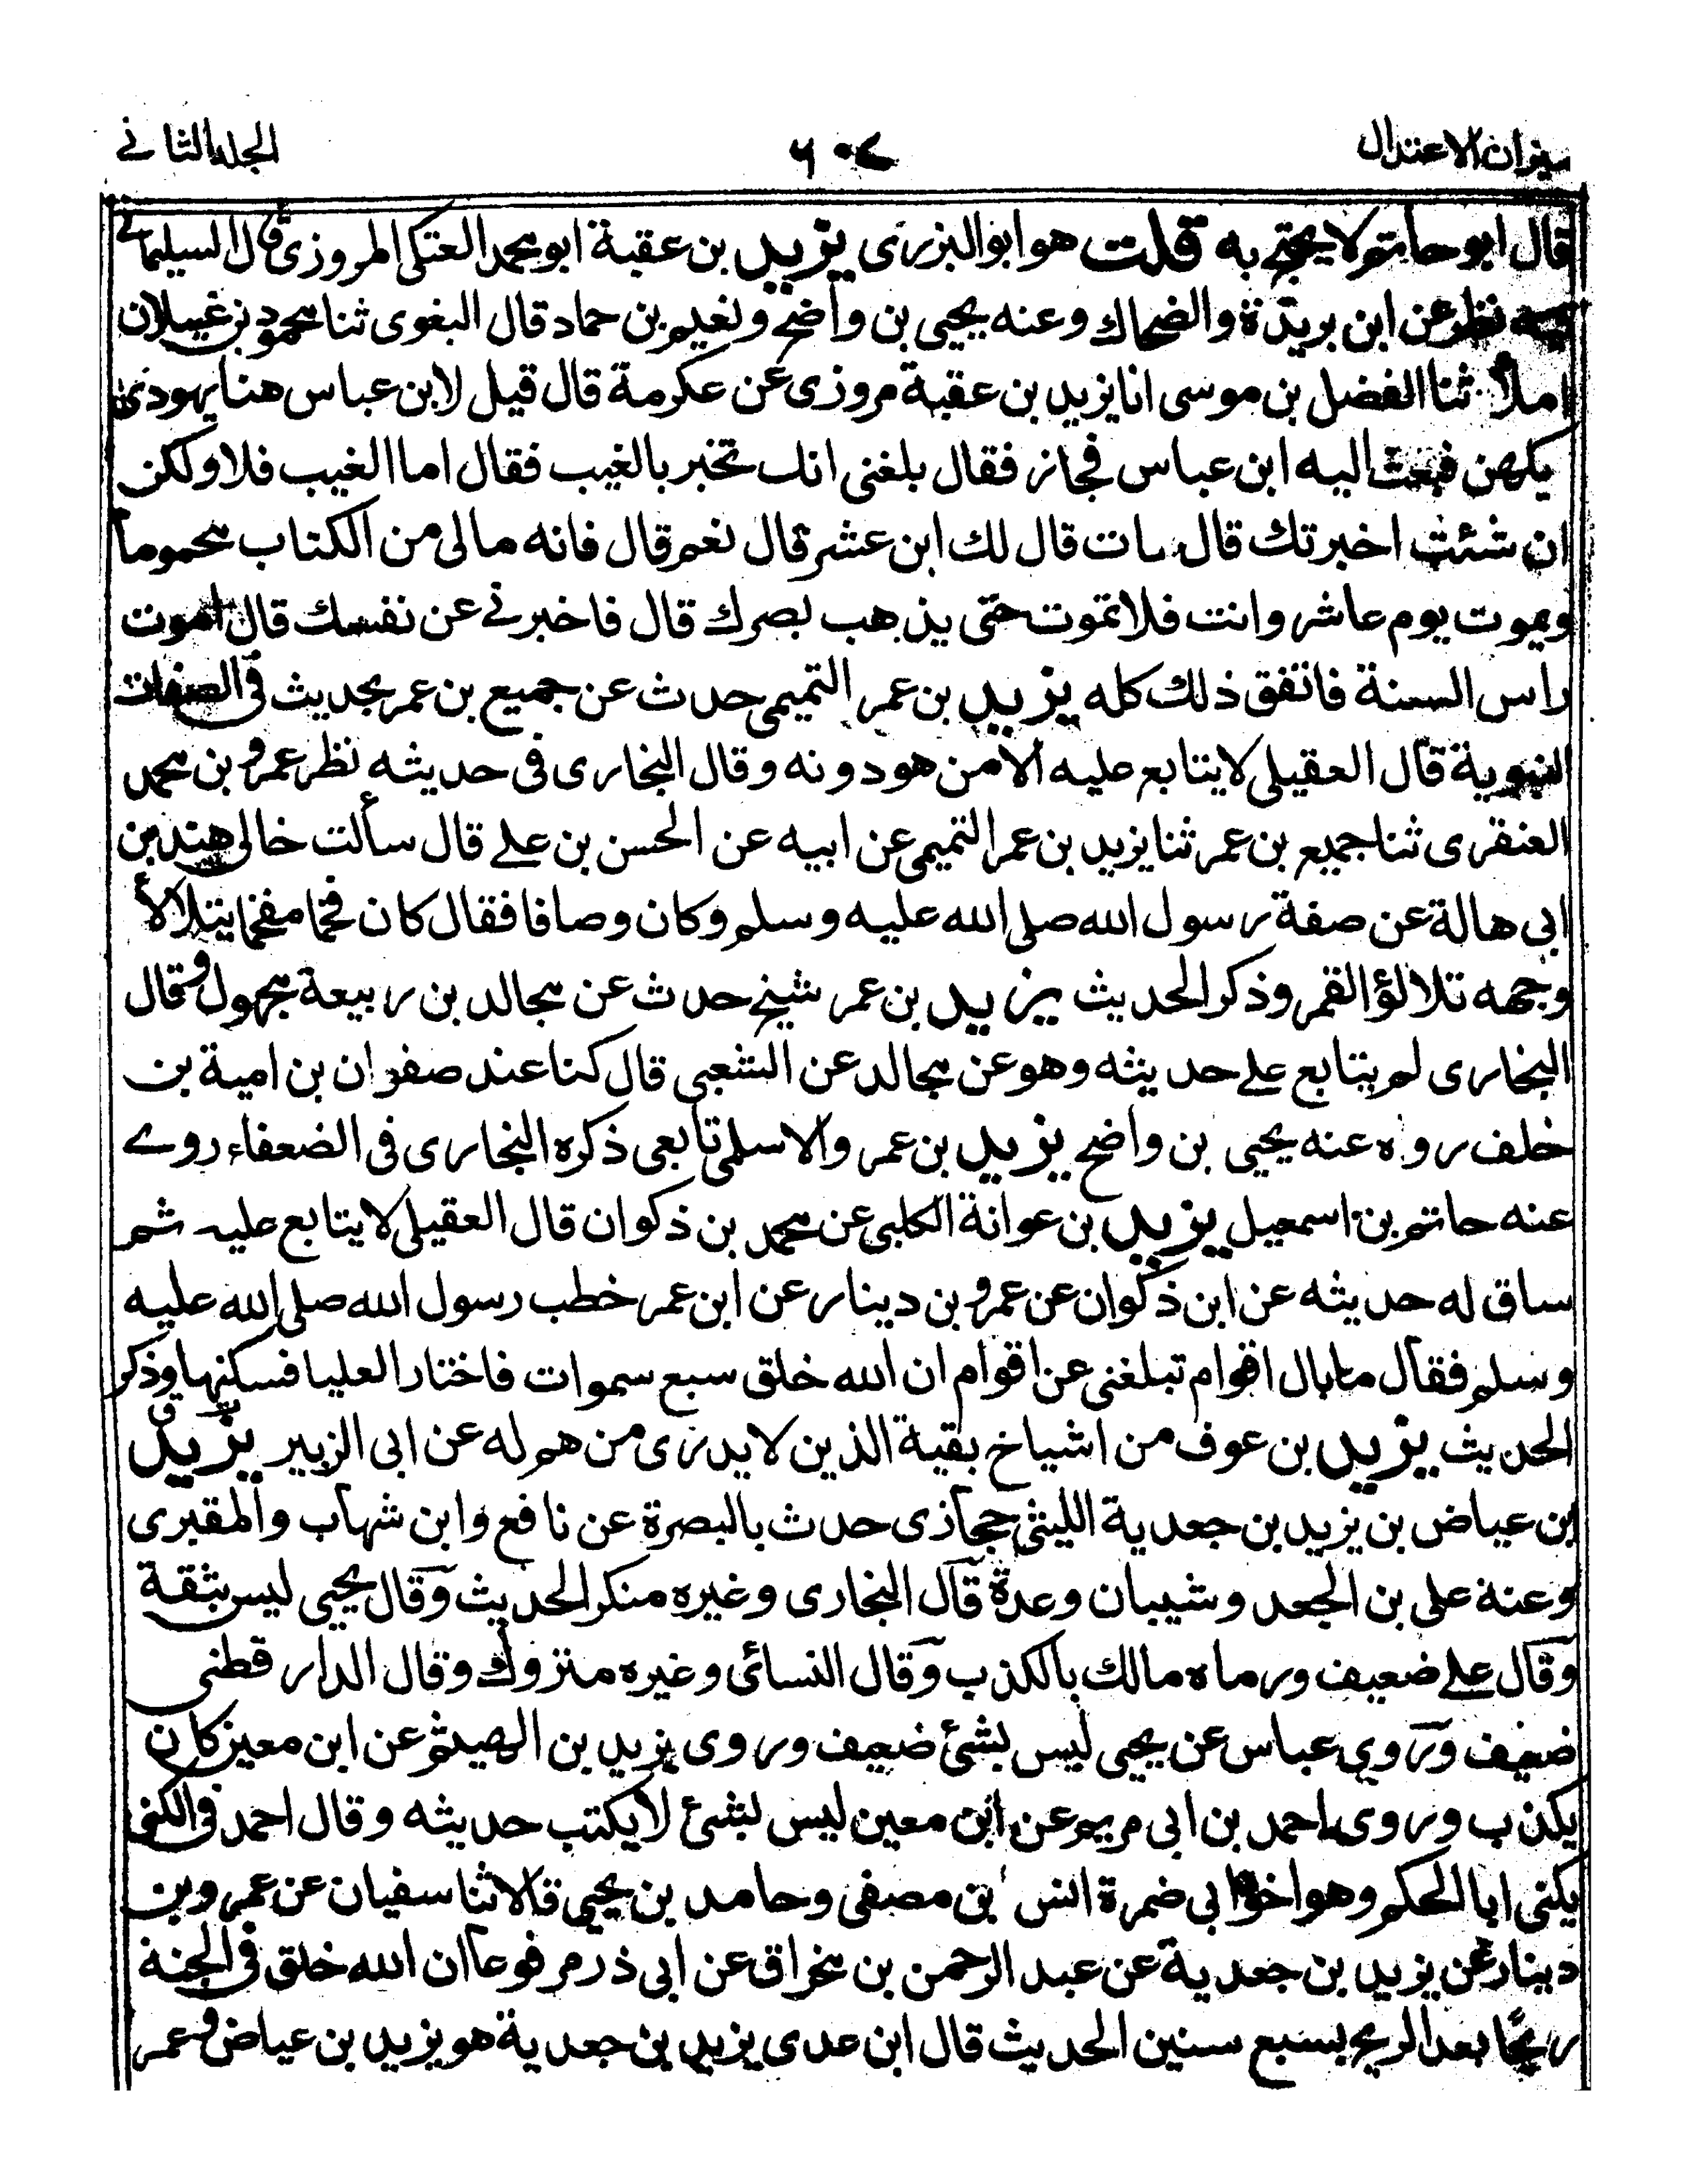 ميزان الاعتدال ٦٠٧ الجلد الثاني
قال ابو حاتم لا يحتج به قلت هو ابو البزرى يزيد بن عقبة ابو محمد العتكى المروزى قال السليمانے
فيه نظر عن ابن بريدة والضحاك وعنه يحيى بن واضح ونعيم بن حماد قال البغوى ثنا محمود بن غيلان
املأ ثنا الفضل بن موسى انا يزيد بن عقبة مروزى عن عكرمة قال قيل لابن عباس هنا يهودى
يكهن فبعث اليه ابن عباس فجاز فقال بلغنى انك تخبر بالغيب فقال اما الغيب فلا ولكن
ان شئت اخبرتك قال مات قال لك ابن عشر قال نعم قال فانه مالى من الكتاب محموما
ويموت يوم عاشر وانت فلا تموت حتى يذهب بصرك قال فاخبرنے عن نفسك قال اموت
راس السنة فاتفق ذلك كله يزيد بن عمر التميمى حدث عن جميع بن عمر بحديث فى الصفات
النبوية قال العقيلى لا يتابع عليه الا من هو دونه وقال البخارى فى حديثه نظر عمرو بن محمد
العنقرى ثنا جميع بن عمر ثنا يزيد بن عمر التميمى عن ابيه عن الحسن بن علے قال سألت خالى هند بن
ابى هالة عن صفة رسول الله صلى الله عليه وسلم وكان وصافا فقال كان فخما مفخما يتلالأ
وجهه تلالؤ القمر وذكر الحديث يزيد بن عمر شيخ حدث عن مجالد بن ربيعة مجهول وقال
البخارى لم يتابع علے حديثه وهو عن مجالد عن الشعبى قال كنا عند صفوان بن امية بن
خلف رواه عنه يحيى بن واضح يزيد بن عمر والاسلمى تابعى ذكره البخارى فى الضعفاء روے
عنه حاتم بن اسمعيل يزيد بن عوانة الكلبى عن محمد بن ذكوان قال العقيلى لا يتابع عليه ثم
ساق له حديثه عن ابن ذكوان عن عمرو بن دينار عن ابن عمر خطب رسول الله صلى الله عليه
وسلم فقال ما بال اقوام تبلغنى عن اقوام ان الله خلق سبع سموات فاختار العليا فسكنها وذكر
الحديث يزيد بن عوف من اشياخ بقية الذين لا يدرى من هم له عن ابى الزبير يزيد ت ق
بن عياض بن يزيد بن جعدية الليثى حجازى حدث بالبصرة عن نافع وابن شهاب والمقبرى
وعنه على بن الجعد وشيبان وعدة قال البخارى وغيره منكر الحديث وقال يحيى ليس بثقة
وقال علے ضعيف ورماه مالك بالكذب وقال النسائى وغيره متروك وقال الدارقطنى
ضعيف وروى عباس عن يحيى ليس بشئ ضعيف وروى يزيد بن الهيثم عن ابن معين كان
يكذب وروى احمد بن ابى مريم عن ابن معين ليس بشئ لا يكتب حديثه وقال احمد فى الكنى
يكنى ابا الحكم وهو اخو ابى ضمرة انس بن مصفى وحامد بن يحيى قالا ثنا سفيان عن عمرو بن
دينار عن يزيد بن جعدية عن عبد الرحمن بن مخراق عن ابى ذر مرفوعا ان الله خلق فى الجنة
ريحا بعد الريح بسبع سنين الحديث قال ابن عدى يزيد بن جعدية هو يزيد بن عياض وعمر